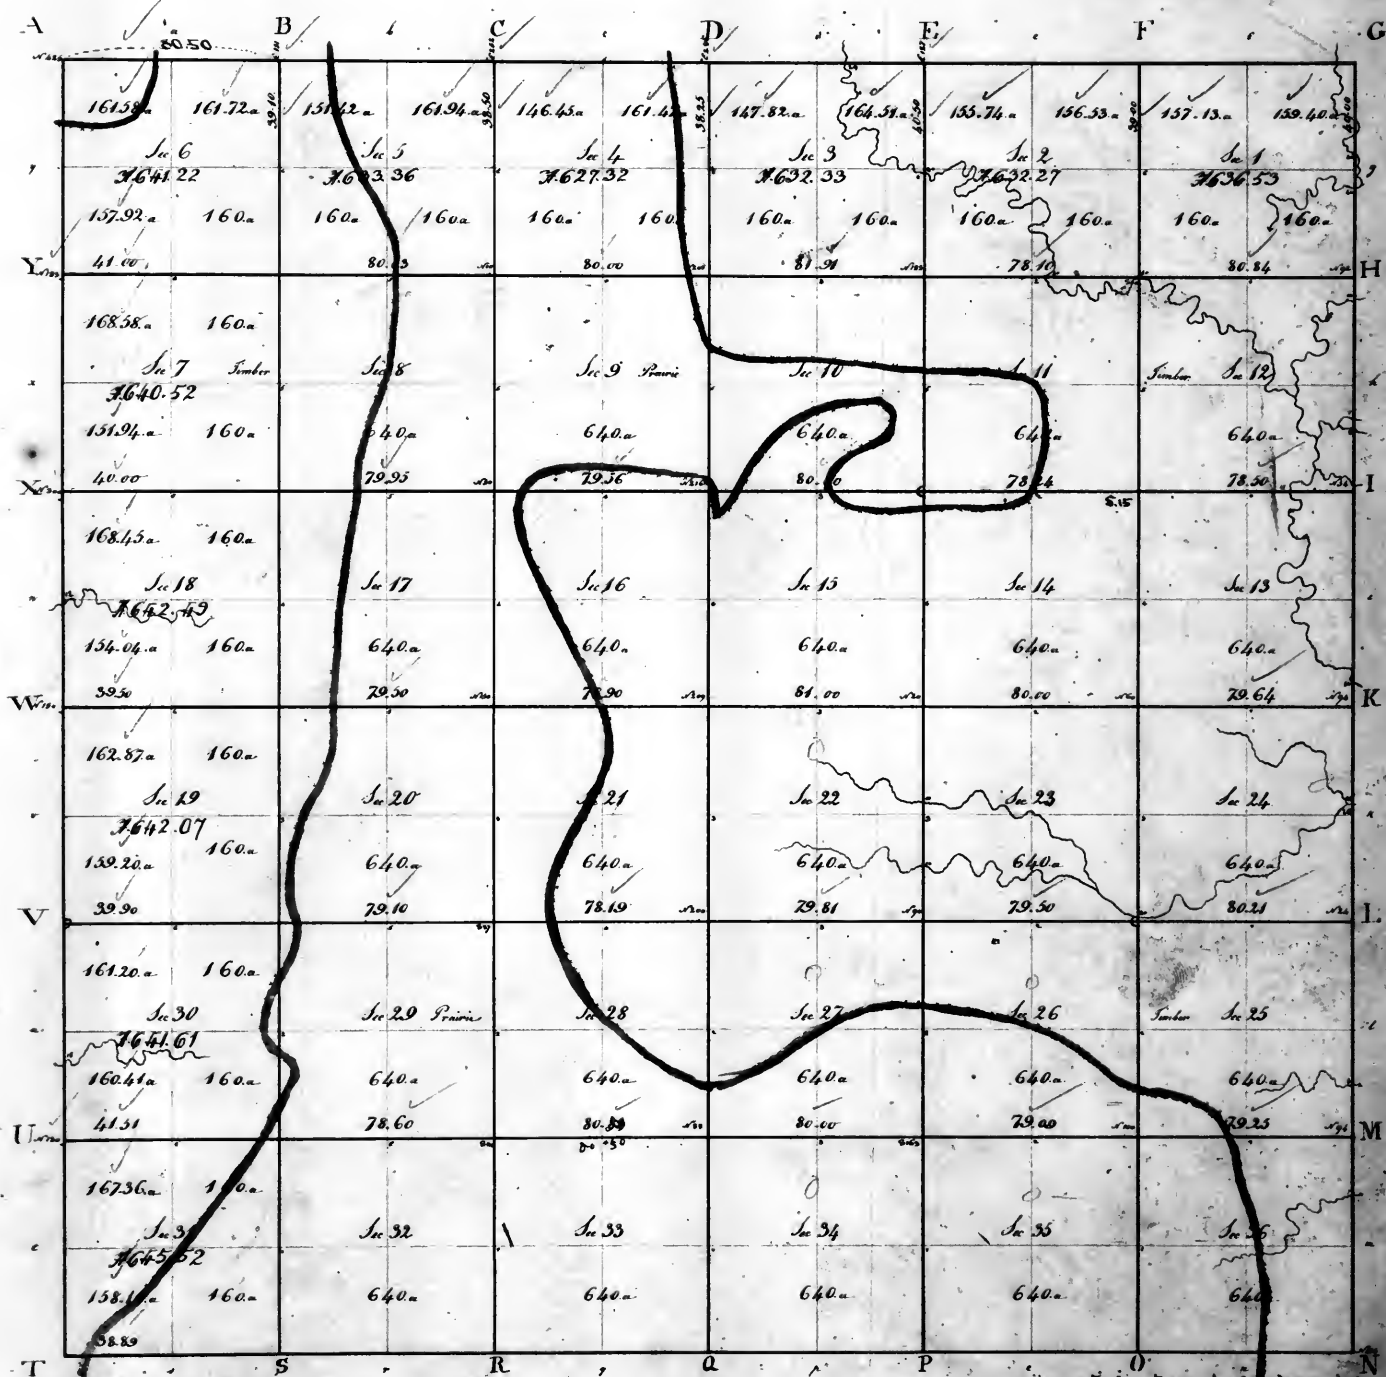 A B C D E F G
80.50
161.58.a 161.72.a 39.10 151.42.a 161.94.a 38.50 146.45.a 161.42.a 38.25 147.82.a 164.51.a 40.50 155.74.a 156.53.a 39.00 157.13.a 159.40.a 40.00
Sec 6 Sec 5 Sec 4 Sec 3 Sec 2 Sec 1
A.641.22 A.633.36 A.627.32 A.632.33 A.632.27 A.636.53
157.92.a 160.a 160.a 160.a 160.a 160. 160.a 160.a 160.a 160.a 160.a 160.a
Y 41.00 80.00 81.91 78.10 80.84 H
168.58.a 160.a
Sec 7 Timber Sec 8 Sec 9 Prairie Sec 10 Sec 11 Timber Sec 12
A.640.52
151.94.a 160.a 640.a 640.a 640.a 640.a 640.a
X 40.00 79.95 79.56 78.24 78.50 I
5.15
168.45.a 160.a
Sec 18 Sec 17 Sec 16 Sec 15 Sec 14 Sec 13
A.642.49
154.04.a 160.a 640.a 640.a 640.a 640.a 640.a
W 39.50 79.50 81.00 80.00 79.64 K
162.87.a 160.a
Sec 19 Sec 20 21 Sec 22 Sec 23 Sec 24
A.642.07
159.20.a 160.a 640.a 640.a 640.a 640.a 640.a
V 39.90 79.10 78.19 79.81 79.50 80.21 L
161.20.a 160.a
Sec 30 Sec 29 Prairie Sec 28 Sec 27 Sec 26 Timber Sec 25
A.641.61
160.41.a 160.a 640.a 640.a 640.a 640.a 640.a
U 41.51 78.60 80.00 79.00 79.25 M
167.36.a 160.a
Sec 31 Sec 32 Sec 33 Sec 34 Sec 35 Sec 36
A.645.52
160.a 640.a 640.a 640.a 640.a 640
38.89
T S R Q P O N